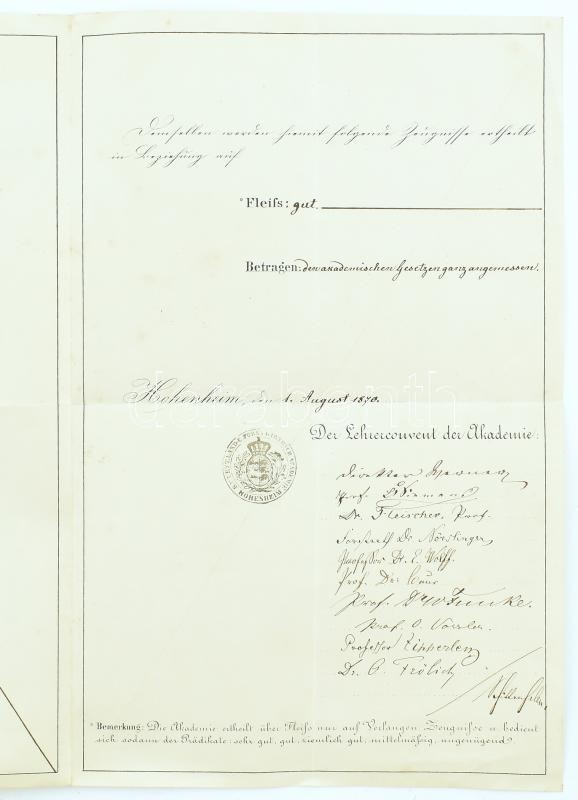 Demselben werden hiemit folgende Zeugnisse ertheilt
in Beziehung auf
* Fleifs: gut.
Betragen: den akademischen Gesetzen ganz angemessen.
Hohenheim, den 1. August 1870.
Der Lehrerconvent der Akademie:
HOHENHEIM
Direktor Werner
Prof. Siemens
Dr. Fleischer, Prof.
Forstrath Dr. Nördlinger
Professor Dr. E. Wolff.
Prof. Dr. Baur
Prof. Dr. W Funke.
Prof. O. Vossler.
Professor Zipperlen
Dr. O. Frölich
* Bemerkung: Die Akademie ertheilt über Fleifs nur auf Verlangen Zeugnifse u. bedient
sich sodann der Prädikate: sehr gut, gut, ziemlich gut, mittelmäfsig, ungenügend.
darabanth